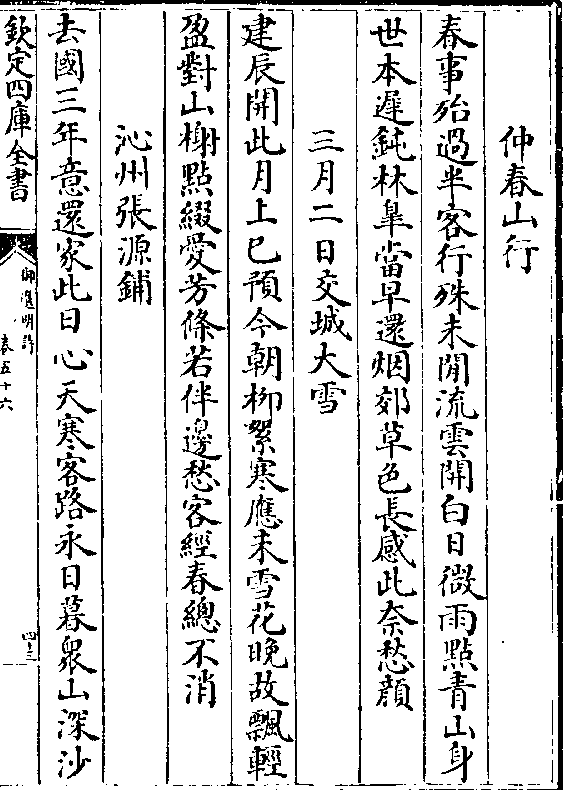 仲春山行
春事殆過半客行殊未閒流雲開白日微雨點青山身
世本遲鈍林臯當早還烟郊草色長感此奈愁顔
三月二日交城大雪
建辰開此月上巳預今朝柳絮寒應未雪花晩故飄輕
盈對山榭點綴愛芳條若伴邊愁客經春總不消
沁州張源鋪
去國三年意還家此日心天寒客路永日暮衆山深沙
欽定四庫全書
御選明詩
卷五十六
四三